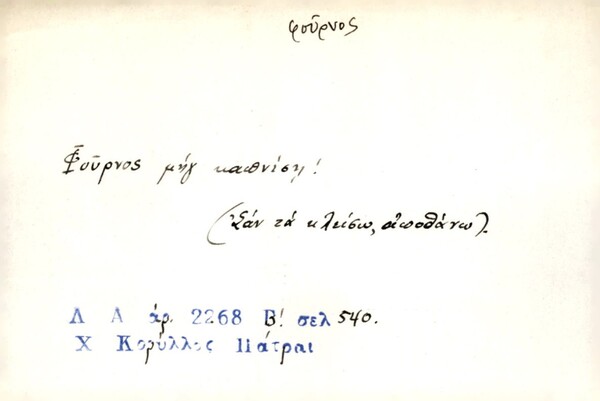 φοῦρνος
Φοῦρνος μὴγ καπνίσῃ!
(Σάν τά κλείσω, ἀποθάνω).
Λ Α ἀρ. 2268 Β! σελ 540.
Χ Κορύλλος Πάτραι